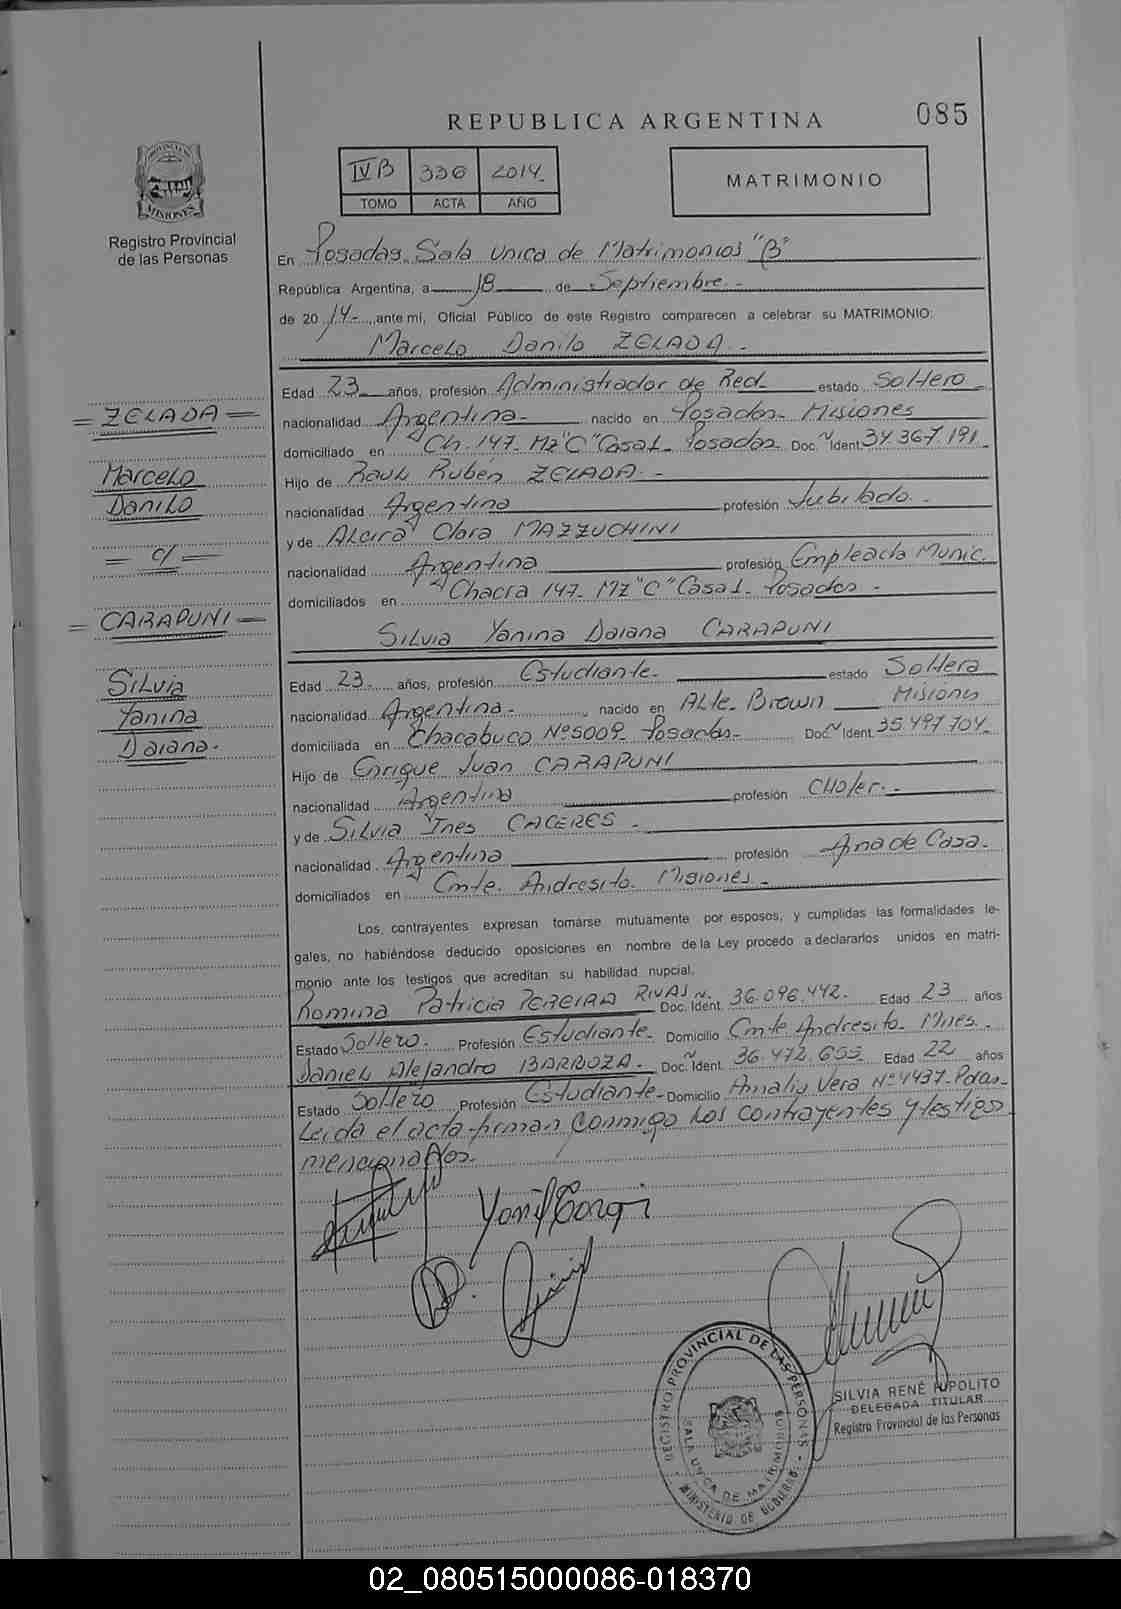 REPUBLICA ARGENTINA
085
IVB 336 2014
TOMO ACTA AÑO
MATRIMONIO
PROVINCIA DE
MISIONES
Registro Provincial
de las Personas
En Posadas. Sala Unica de Matrimonios "B"
República Argentina, a 18 de Septiembre.-
de 20 14- , ante mí, Oficial Público de este Registro comparecen a celebrar su MATRIMONIO:
Marcelo Danilo ZELADA.-
Edad 23 años, profesión Administrador de Red- estado Soltero
nacionalidad Argentina- nacido en Posadas- Misiones
domiciliado en Ch. 147- Mz "C" Casa 1- Posadas- Doc. Ident. 34.367.191
Hijo de Raul Rubén ZELADA.-
nacionalidad Argentina profesión Jubilado.-
y de Alcira Clara MAZZUCHINI
nacionalidad Argentina profesión Empleada Munic.
domiciliados en Chacra 147- Mz "C" Casa 1- Posadas-
Silvia Yanina Daiana CARAPUNI
Edad 23 años, profesión Estudiante- estado Soltera
nacionalidad Argentina- nacido en Alte. Brown Misiones
domiciliada en Chacabuco Nº 5009- Posadas- Doc. Ident. 35.497.704
Hijo de Enrique Juan CARAPUNI
nacionalidad Argentina profesión CHofer.-
y de Silvia Ines CACERES-
nacionalidad Argentina profesión Ama de Casa.
domiciliados en Cmte. Andresito. Misiones-
Los, contrayentes expresan tomarse mutuamente por esposos, y cumplidas las formalidades le-
gales, no habiéndose deducido oposiciones en nombre de la Ley procedo a declararlos unidos en matri-
monio ante los testigos que acreditan su habilidad nupcial.
Romina Patricia PEREIRA RIVAS Doc. Ident. 36.096.442. Edad 23 años
Estado Soltero. Profesión Estudiante- Domicilio Cmte. Andresito- Mnes.
Daniel Alejandro BARBOZA- Doc. Ident. 36.472.655 Edad 22 años
Estado Soltero Profesión Estudiante- Domicilio Amalia Vera Nº 4437- Pdas-
Leida el acta firman conmigo los contrayentes y testigos
mencionados.
= ZELADA =
Marcelo
Danilo
= c/ =
= CARAPUNI =
Silvia
Yanina
Daiana.
REGISTRO PROVINCIAL DE LAS PERSONAS
SALA UNICA DE MATRIMONIOS
MINISTERIO DE GOBIERNO
SILVIA RENÉ HIPOLITO
DELEGADA TITULAR
Registro Provincial de las Personas
02_080515000086-018370